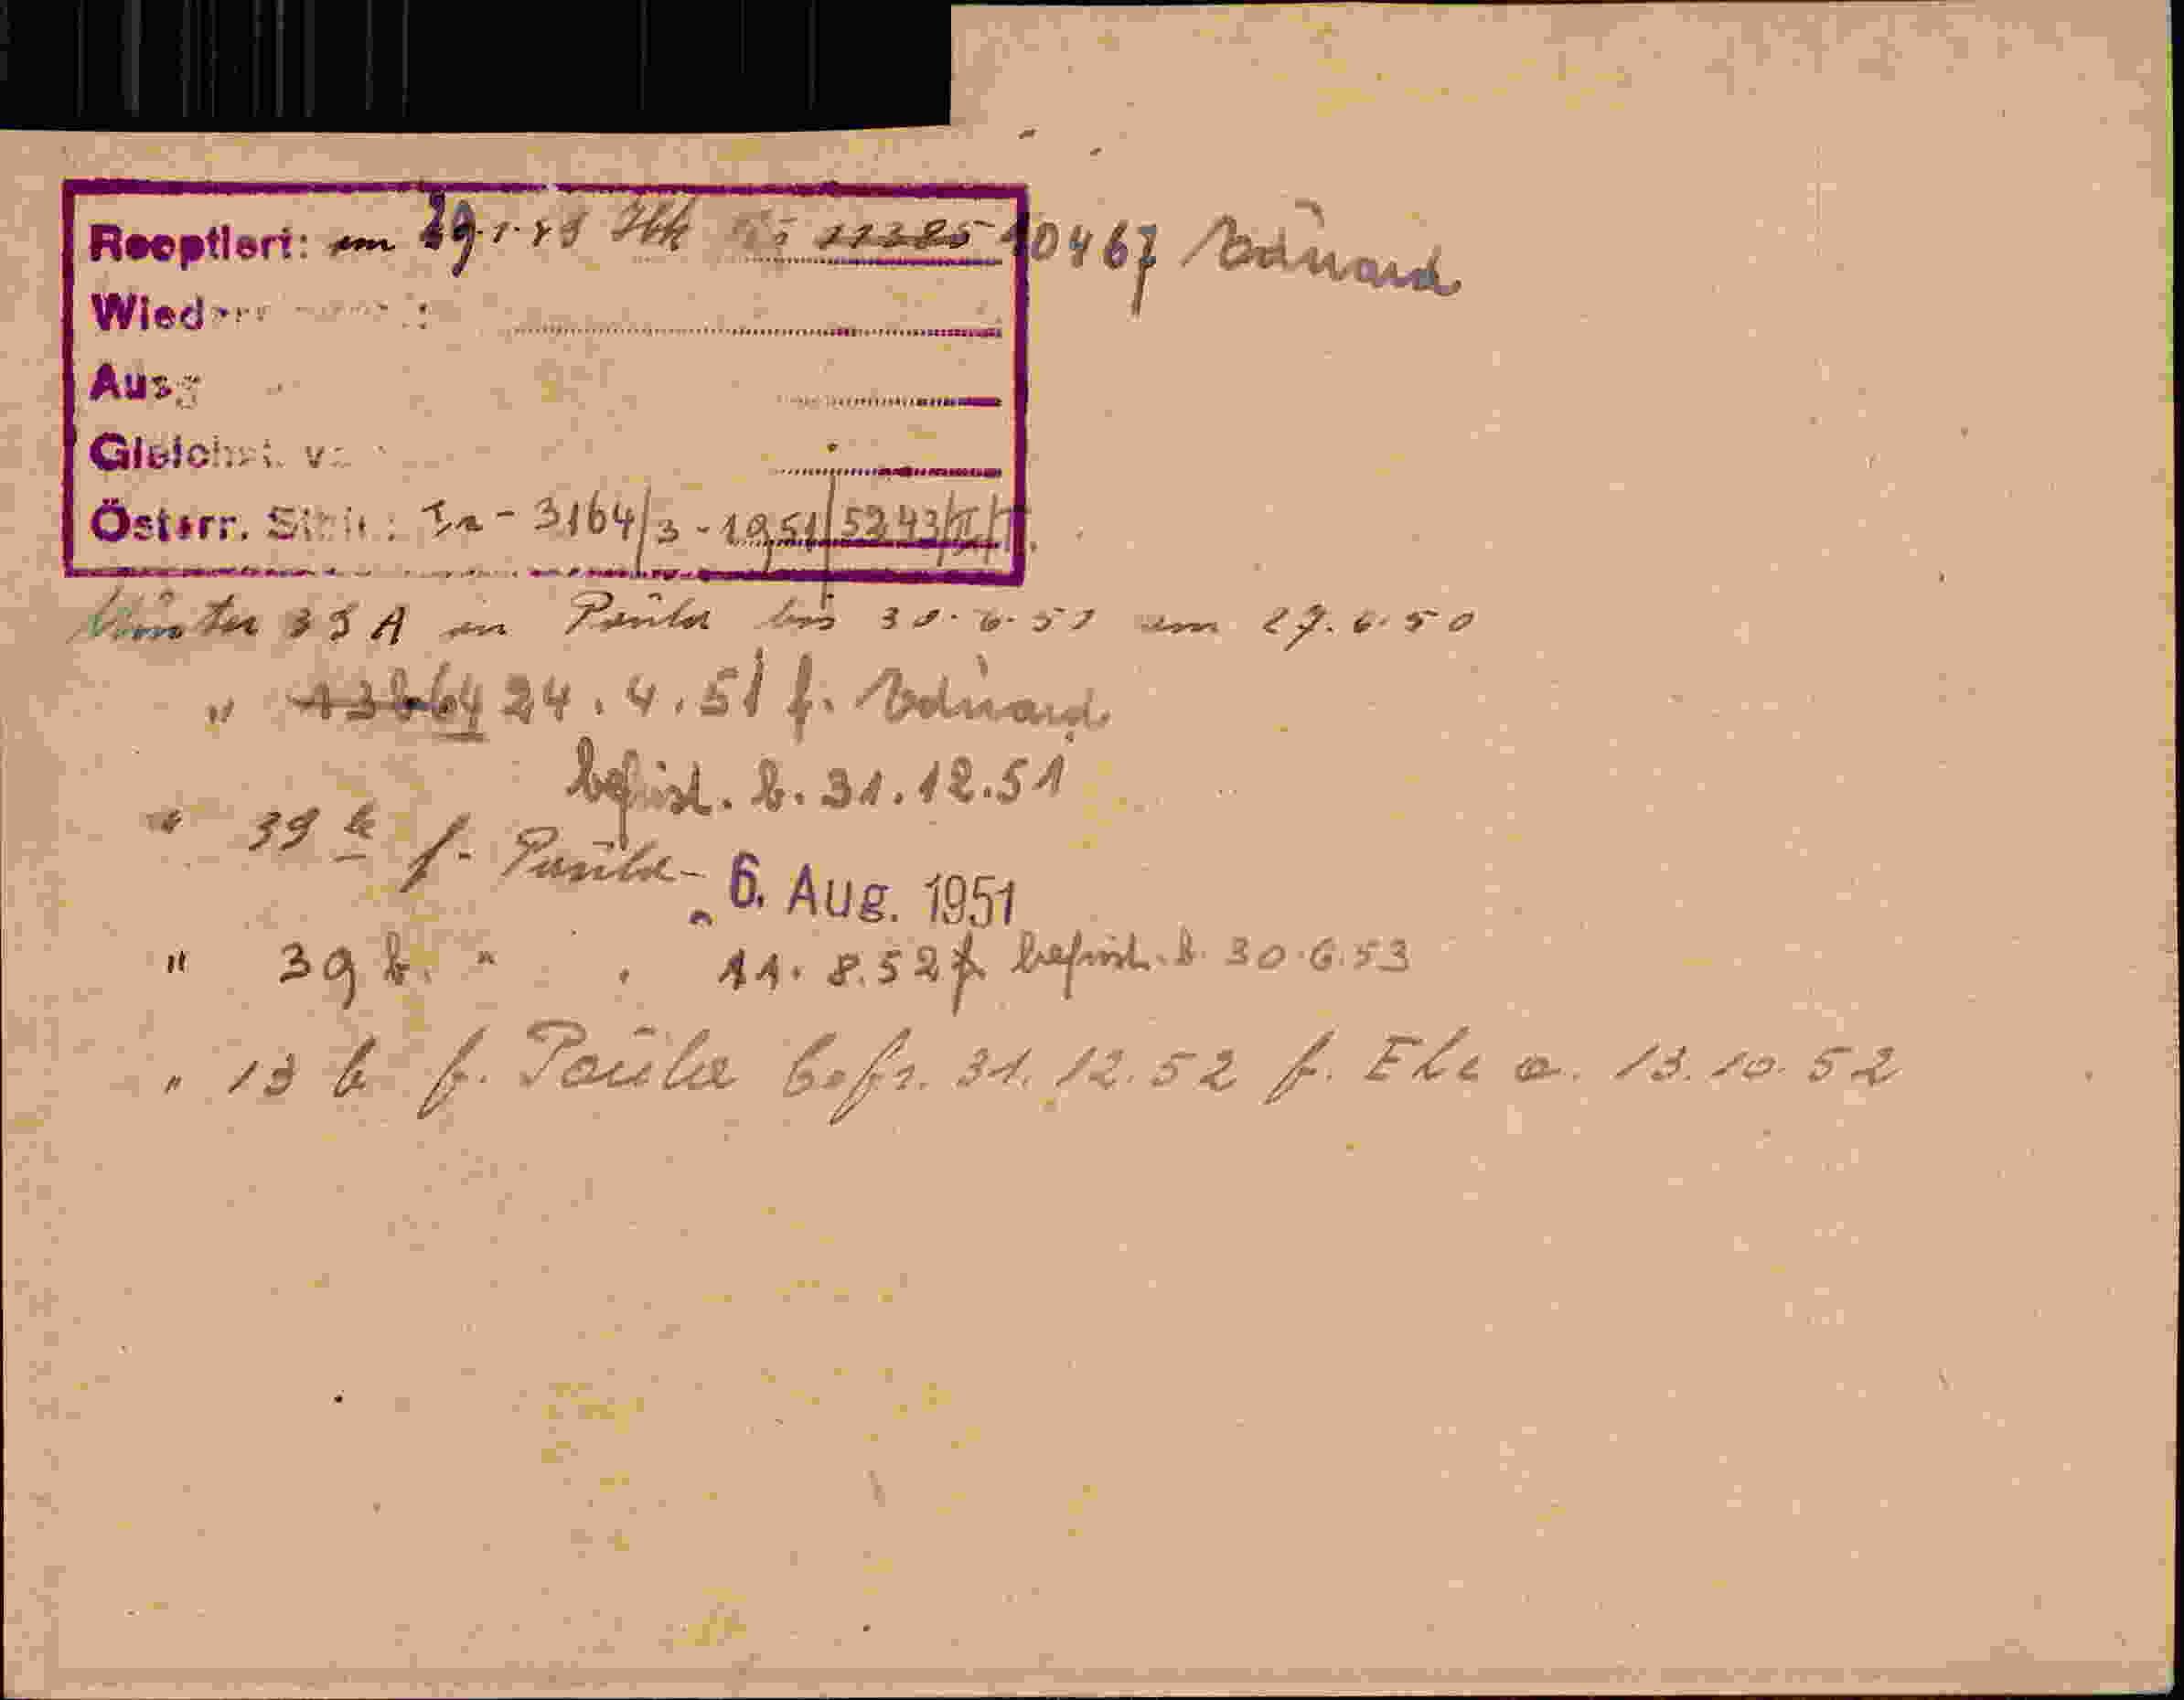 Reoptiert: am 29.1.49 11385 10467 Eduard
Wied
Ausg
Gleichst. v
Österr. Stb.: Ia - 3164/3 - 1951/5243/II/T.
Muster 39 A an Paula bis 30.6.51 am 27.6.50
" 13864 24.4.51 f. Eduard
befrist. b. 31.12.51
" 39 b f. Paula - 6. Aug. 1951
" 39 b. " . 11. 8.52 befrist. b. 30.6.53
" 13 b f. Paula befr. 31.12.52 f. Ehe a. 13.10.52